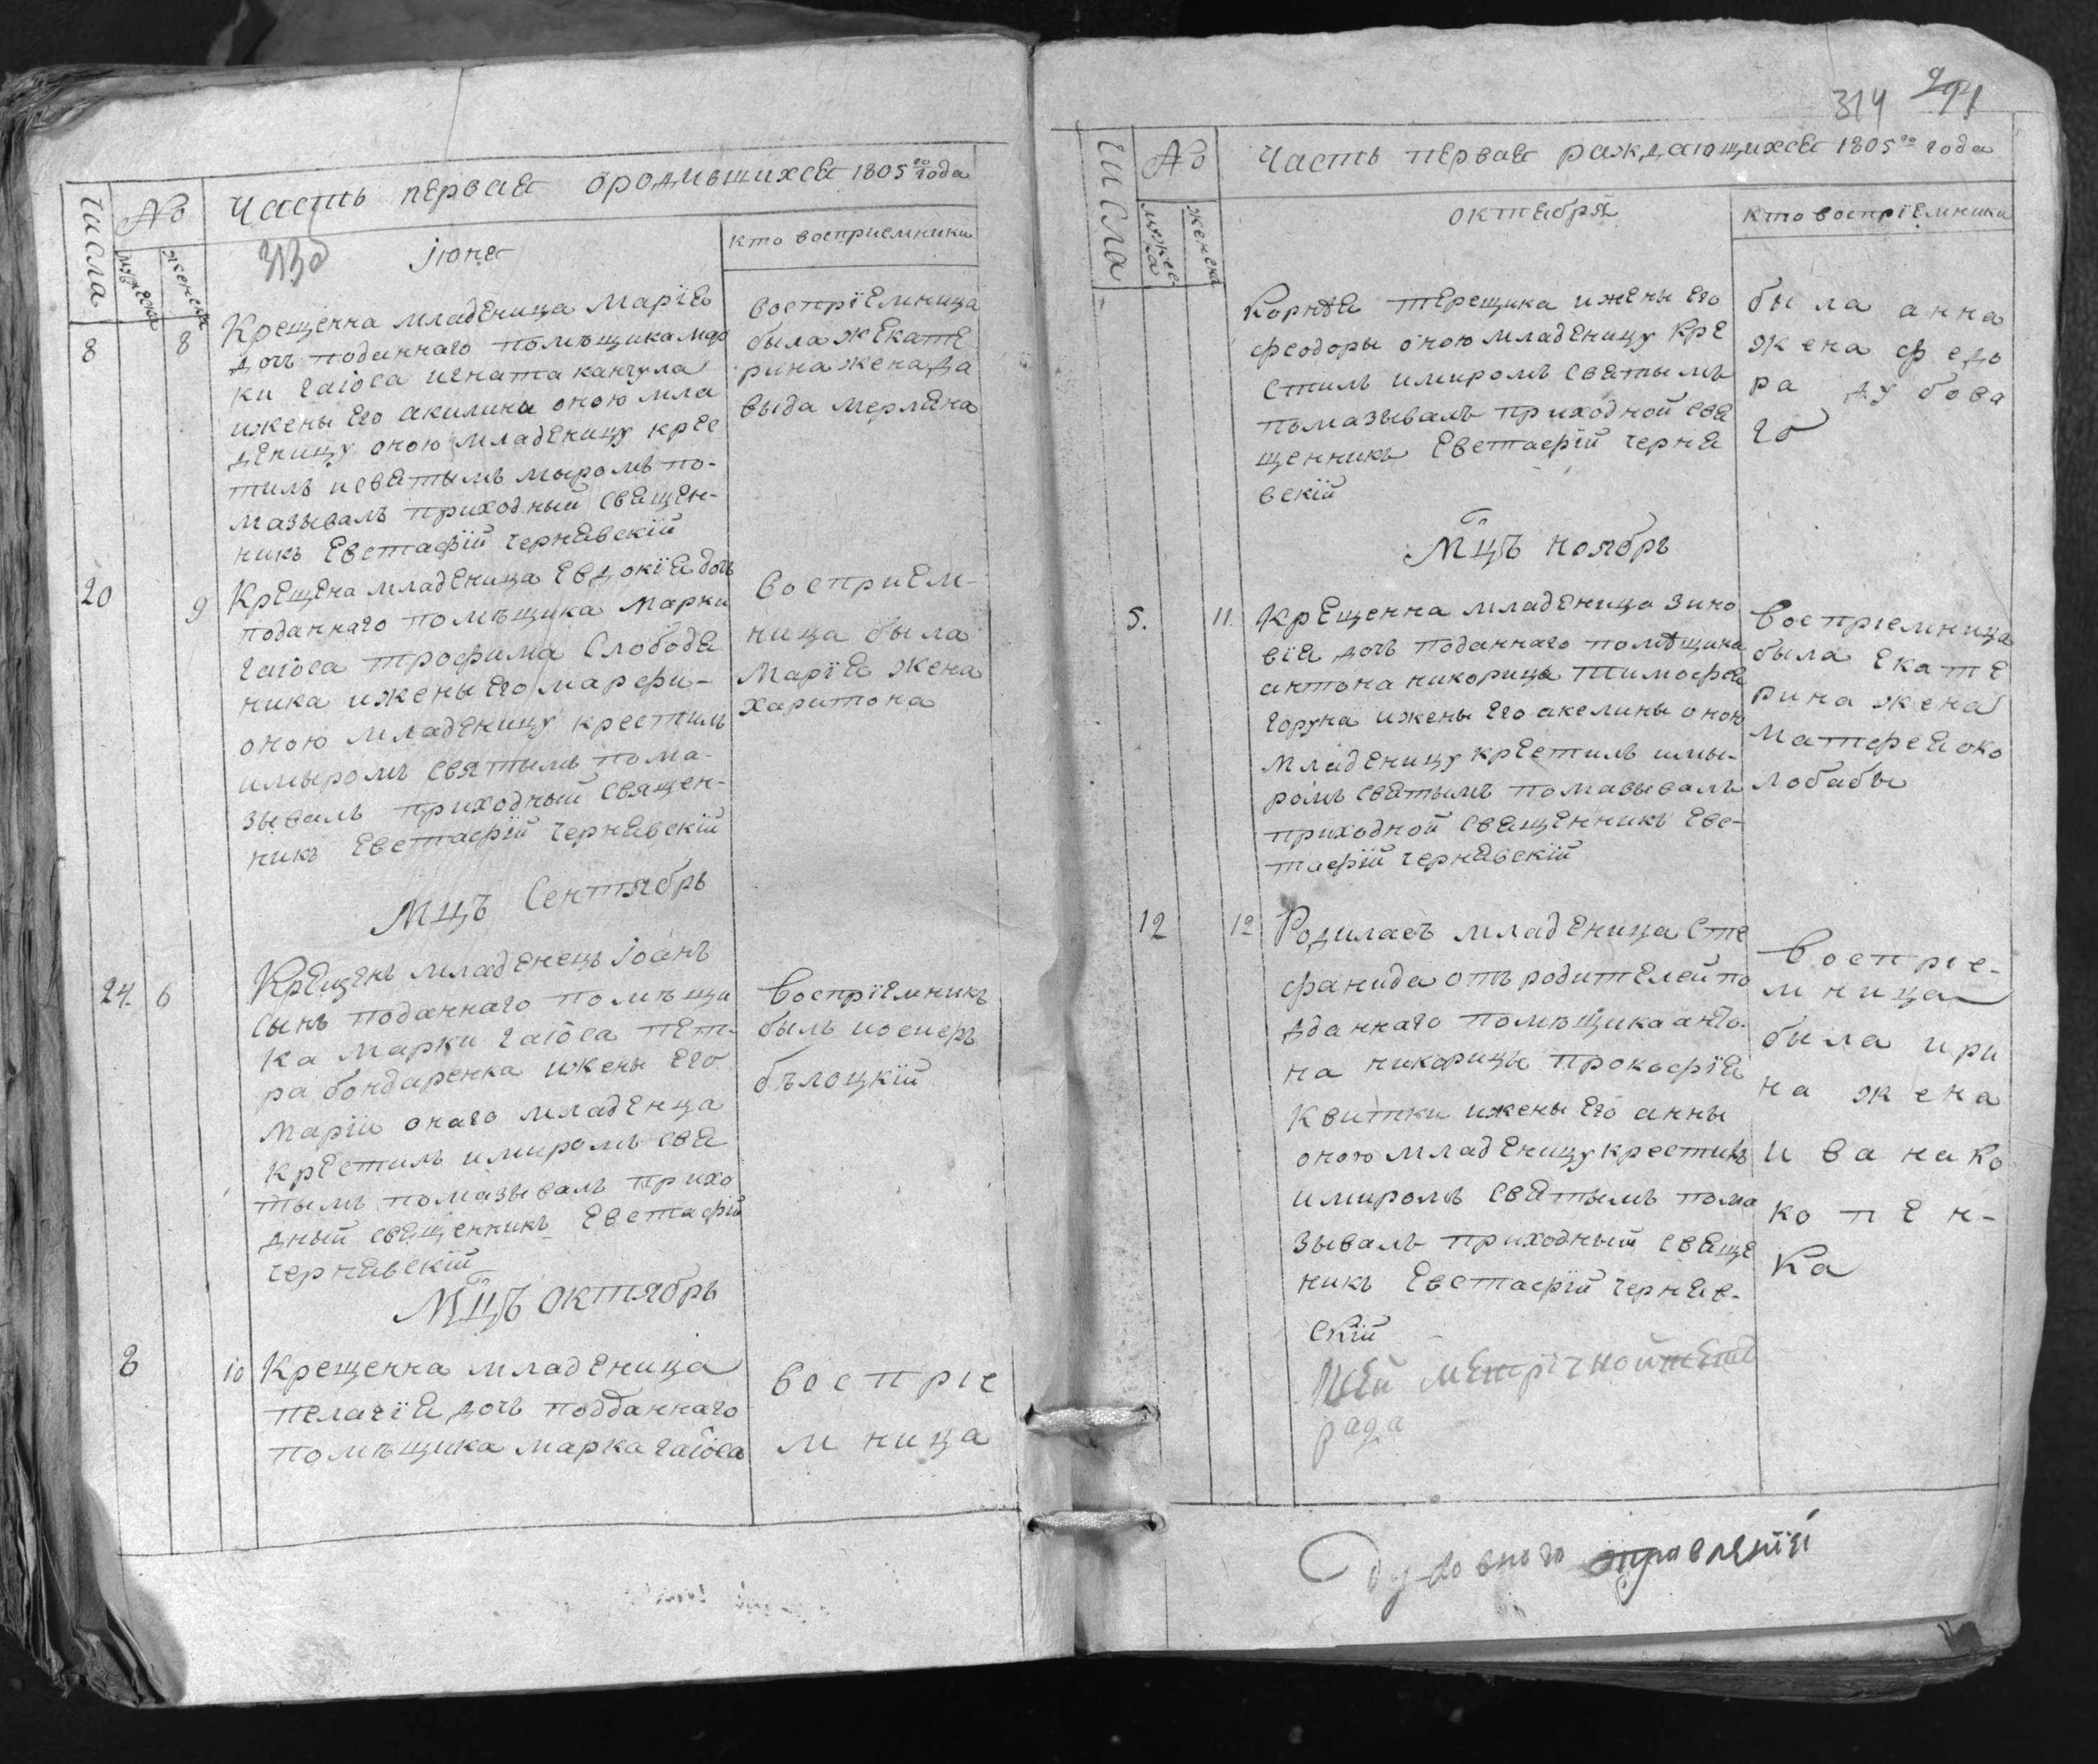 Часть перваѧ ѡродившихсѧ 1805го года
числа
No
мужеска
женска
313о
Іюнѧ
кто восприемники
8
8
Крещенна младеница Маріѧ
дочъ поданнаго помѣщика мар
ки гаіоса игната канчула
ижены его акилины оною мла
деницу оною младеницу крес
тилъ исвѧтымъ мыромъ по-
мазывалъ приходный свѧщен-
никъ Евстафій чернѧвскій
воспріемница
была жекате
рина жена да
выда мерлѧна
20
9
Крещена младеница Евдокіѧ дочъ
поданнаго помѣщика марки
гаіоса трофима Слободѧ
ника ижены его марфи-
оною младеницу крестилъ
имыромъ святымъ пома-
зывалъ приходный священ-
никъ Евстафій чернѧвскій
восприем-
ница была
Маріѧ жена
харитона
Мцъ Сентябрь
24.
6
Крещенъ младенецъ іоанъ
сынъ поданнаго помѣщи
ка марки гаіоса пет-
ра бондаренка ижены его
Маріи онаго младенца
крестилъ имиромъ свѧ
тымъ помазывалъ прихо
дный свѧщенникъ Евстафій
чернѧвскій
воспріемникъ
былъ иосифъ
бѣлоцкій
Мцъ октябрь
8
10
Крещенна младеница
пелагіѧ дочъ подданнаго
помѣщика марка гаіоса
воспріе
мница
314
291
числа
No
мужес
ка
женска
Часть перваѧ раждающихсѧ 1805го года
октѧбрѧ
кто воспріемники
Корнѣѧ терещика ижены его
феодоры оною младеницу кре
стилъ имиромъ свѧтымъ
помазывалъ приходной свѧ
щенникъ Евстафій чернѧ
вскій
была анна
жена федо
ра дубова
го
Мцъ ноябрь
5.
11.
Крещенна младеница зино
віѧ дочъ поданнаго помѣщика
антона никорица тимофѧ
горуна ижены его акелины оною
младеницу крестилъ имы-
ромъ свѧтымъ помазывалъ
приходной свѧщенникъ Евс-
тафій чернѧвскій
воспріемница
была екате
рина жена
матфеѧ око
лобабы
12
12
Родиласъ младеница Сте
фанида отъ родителей по
дданнаго помѣщика анто-
на никорицы прокофіѧ
Квитки ижены его анны
оною младеницу крестилъ
имиромъ свѧтымъ пома
зывалъ приходный свѧще
никъ Евстафій чернѧв-
скій
воспріе-
мница
была ири
на жена
иванако
копен-
ка
Сей метричной тетр
рада
духовного правленїя